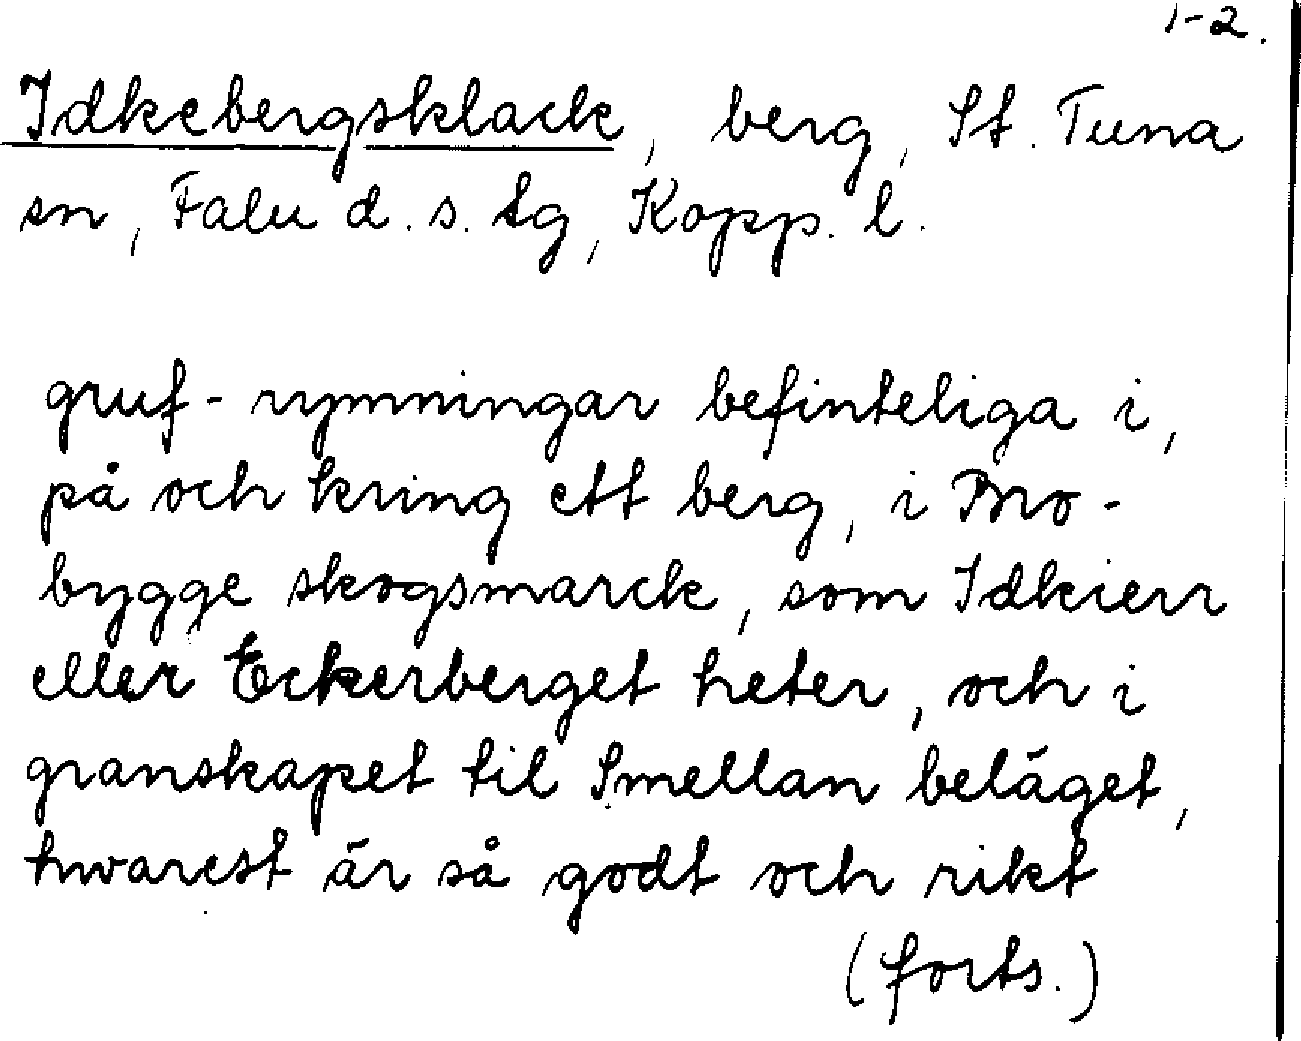 1-2.
Idkebergsklack, berg, St. Tuna
sn, Falu d. s. tg, Kopp. l.
gruf-rymningar befinteliga i,
på och kring ett berg, i Bro-
bygge skogsmarck, som Idkierr
eller Eckerberget heter, och i
granskapet til Smellan beläget,
hwarest är så godt och rikt
(forts.)